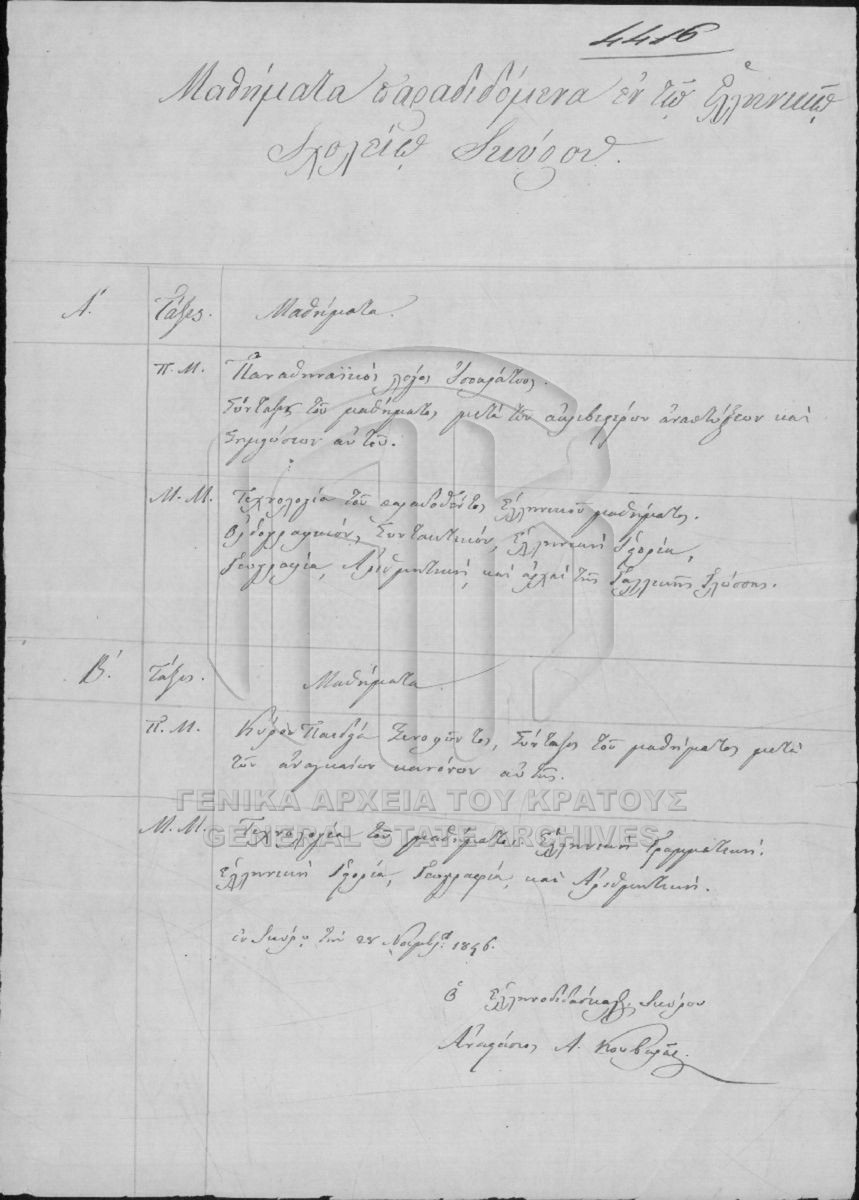 4416
Μαθήματα παραδιδόμενα ἐν τῷ Ἑλληνικῷ
Σχολείῳ Σκύρου.
Α΄. Τάξις. Μαθήματα.
Π.Μ. Παναθηναϊκὸς λόγος Ἰσοκράτους.
Σύνταξις τοῦ μαθήματος μετὰ τῶν ἀκριβεστέρων ἀναπτύξεων καὶ
Σημειώσεων αὐτοῦ.
Μ.Μ. Τεχνολογία τοῦ παραδοθέντος Ἑλληνικοῦ μαθήματος.
Συντακτικόν, Ἑλληνικὴ Ἱστορία,
Γεωγραφία, Ἀριθμητικὴ, καὶ ἀρχαὶ τῆς Γαλλικῆς Γλώσσης.
Β΄. Τάξις. Μαθήματα
Π.Μ. Κύρου Παιδεία Ξενοφῶντος, Σύνταξις τοῦ μαθήματος μετὰ
τῶν ἀναγκαίων κανόνων αὐτῆς.
Μ.Μ. Τεχνολογία τοῦ μαθήματος Ἑλληνικὴ Γραμματική.
Ἑλληνικὴ Ἱστορία, Γεωγραφία, καὶ Ἀριθμητική.
ΓΕΝΙΚΑ ΑΡΧΕΙΑ ΤΟΥ ΚΡΑΤΟΥΣ
GENERAL STATE ARCHIVES
ἐν Σκύρῳ τὴν 28 Νοεμβρ. 1856.
Ὁ Ἑλληνοδιδάσκαλος Σκύρου
Ἀναστάσιος Α. Κουβαρᾶς.